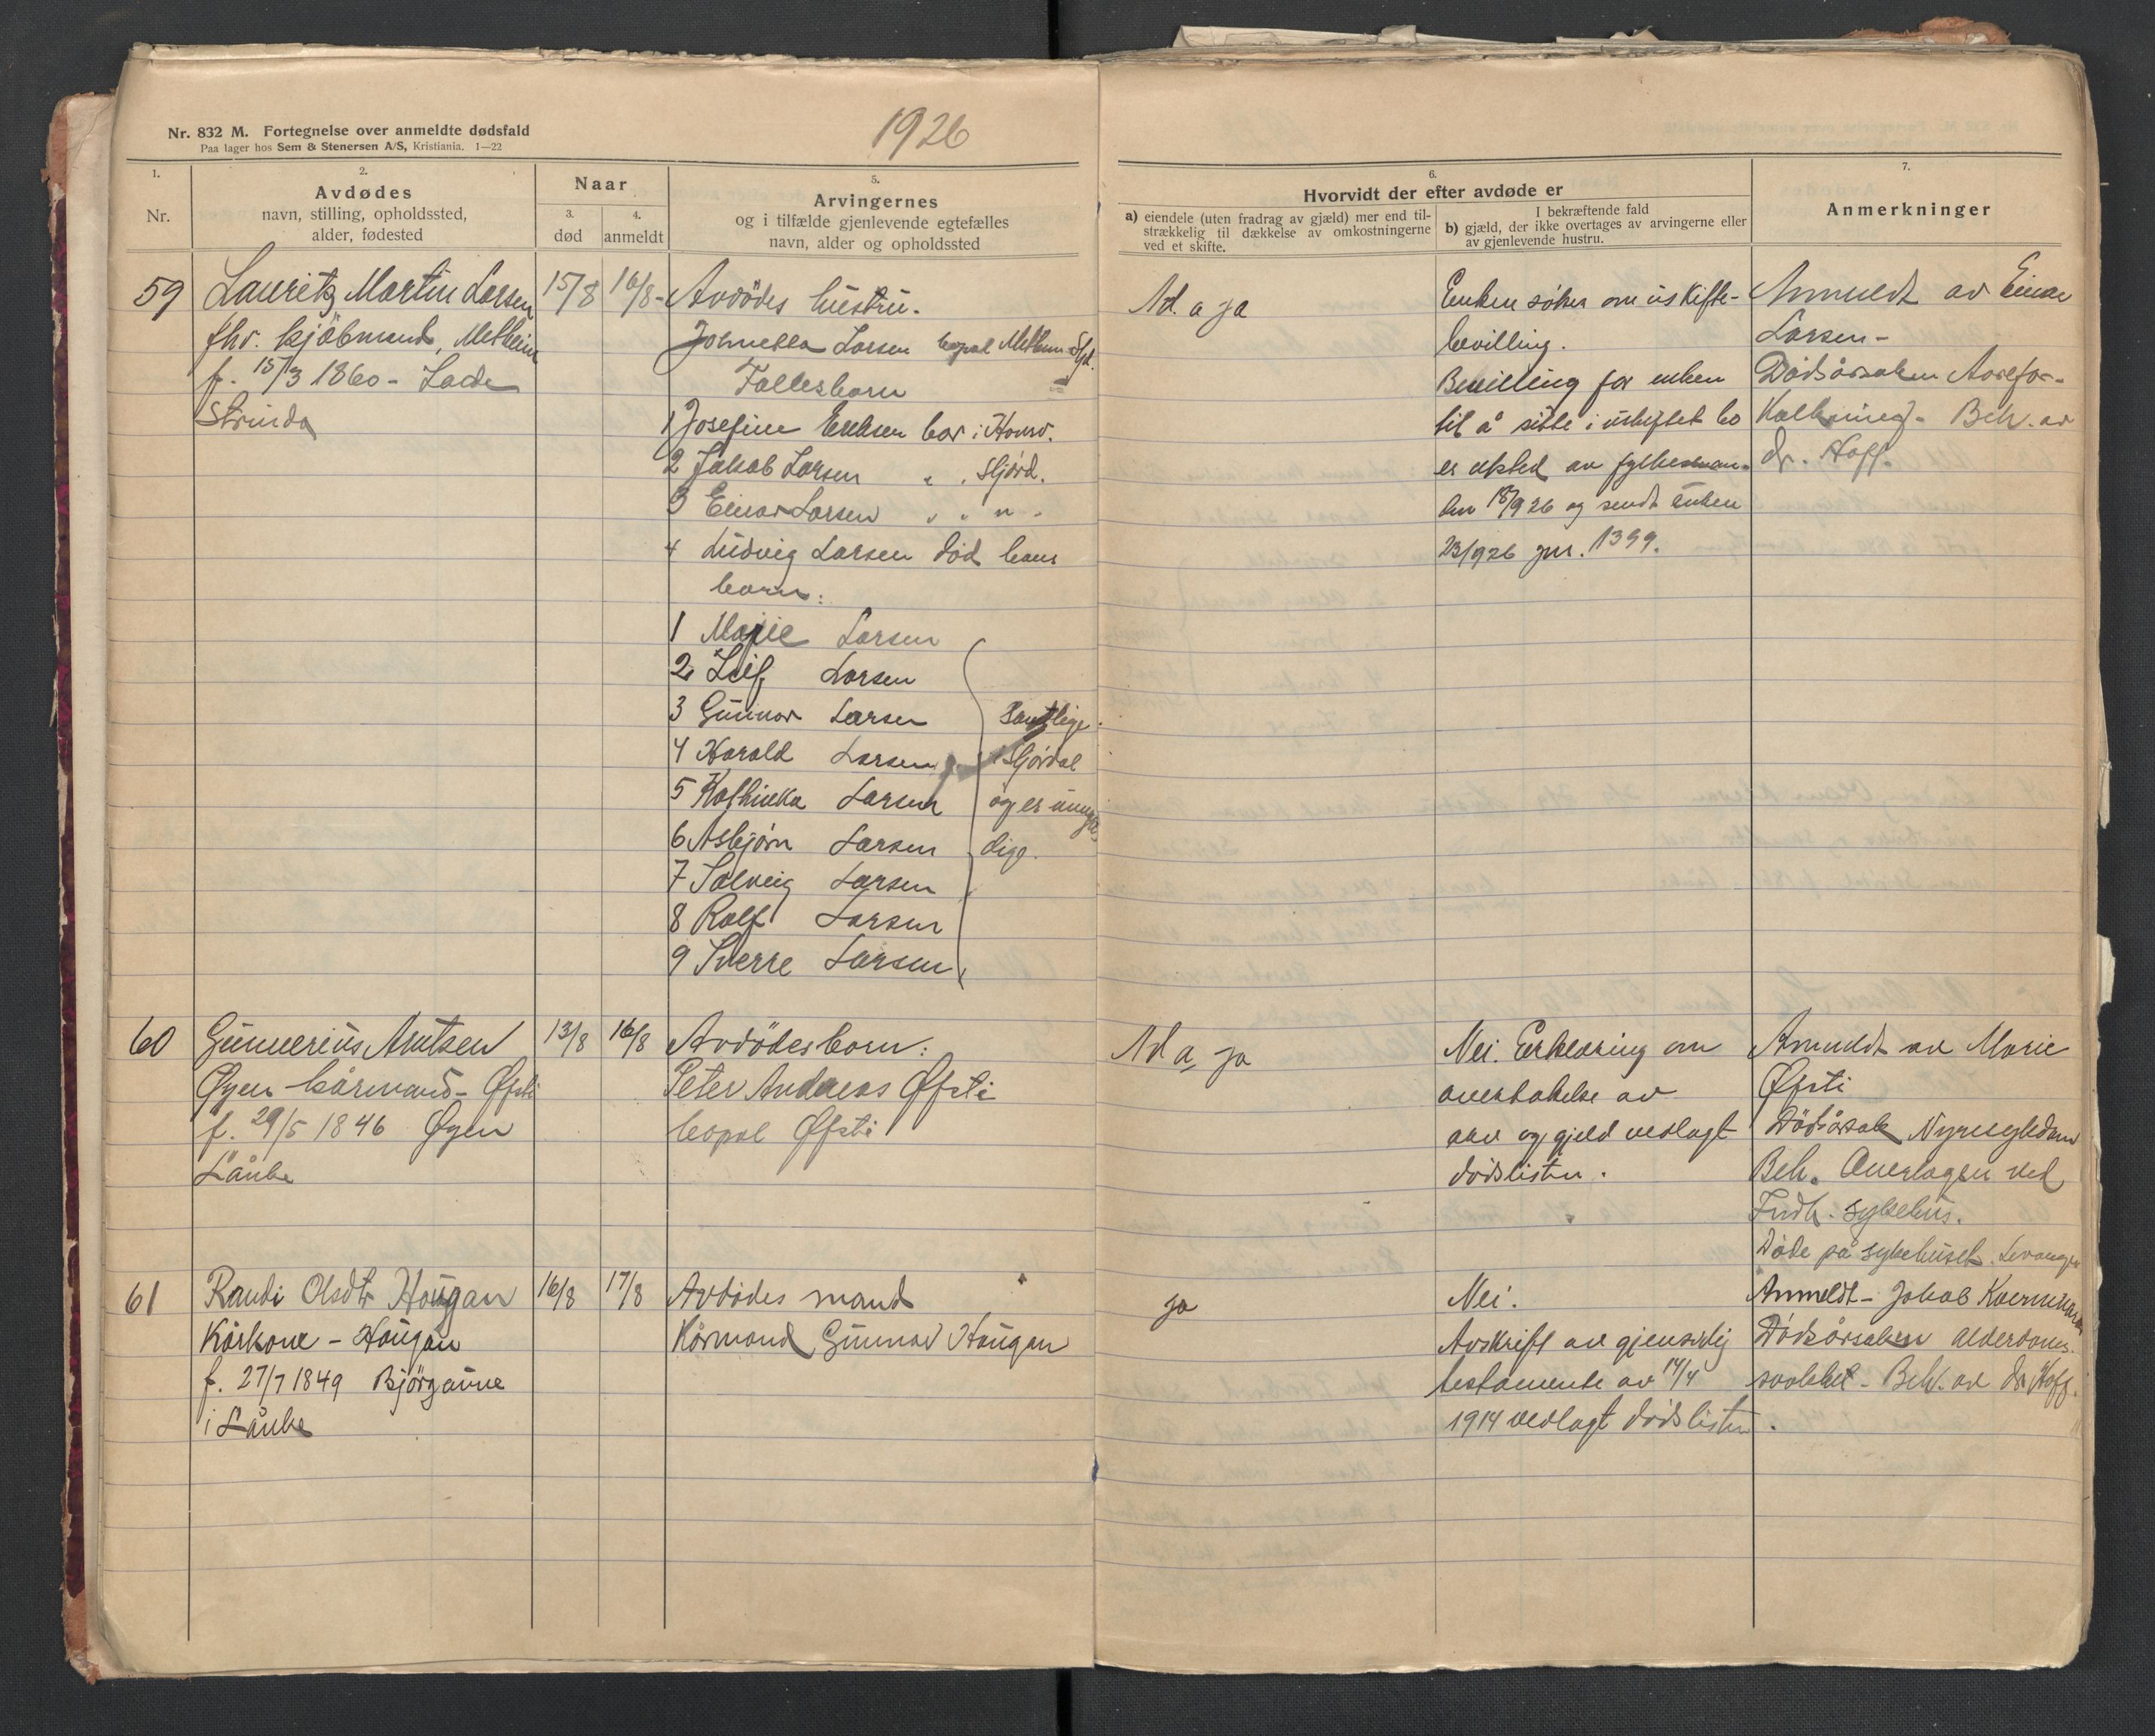 Nr. 832 M. Fortegnelse over anmeldte dødsfald
Paa lager hos Sem & Stenersen A/S, Kristiania. 1—22
1926
1.
Nr.
2.
Avdødes
navn, stilling, opholdssted,
alder, fødested
Naar
3.
død
4.
anmeldt
5.
Arvingernes
og i tilfælde gjenlevende egtefælles
navn, alder og opholdssted
6.
Hvorvidt der efter avdøde er
a) eiendele (uten fradrag av gjæld) mer end til-
strækkelig til dækkelse av omkostningerne
ved et skifte.
I bekræftende fald
b) gjæld, der ikke overtages av arvingerne eller
av gjenlevende hustru.
7.
Anmerkninger
59
Lauritz Martin Larsen
fhv. kjöbmand,
f. 15/3 1860 - Lade
Strinda
15/8
16/8
Avdödes hustru.
Larsen bopæl
Fællesbarn
1 Josefine Eriksen bor i
2 Jakob Larsen " " Stjörd.
3 Einar Larsen " " " -
4 Ludvig Larsen död hans
barn:
1 Marie Larsen
2 Leif Larsen
3 Gunnar Larsen
4 Harald Larsen
5 Kathinka Larsen
6 Asbjørn Larsen
7 Solveig Larsen
8 Rolf Larsen
9 Sverre Larsen
Samtlige
i Stjørdal
og er umyn-
dige.
Ad. a ja
Enken söker om uskifte-
bevilling.
Bevilling for enken
til å sitte i uskiftet bo
er utsted av fylkesman-
den 18/9 26 og sendt enken
23/9 26 jnr. 1399.
Anmeldt av Einar
Larsen -
Dödsårsaken Aarefor-
kalkning - Beh. av
dr. Hoff.
60
Gunnerius Arntsen
Øyen kårmand - Øfsti
f. 29/5 1846 Øyen
Lånke
13/8
16/8
Avdödes barn:
Peter Andreas Øfsti
bopæl Øfsti
Ad a ja
Nei. Erklæring om
overtakelse av
arv og gjeld vedlagt
dödslisten.
Anmeldt av Marie
Øfsti
Dödsårsak Nyresykdom
Beh. Overlægen ved
Indh. sykehus.
Døde på sykehuset. Levanger
61
Randi Olsdtr Haugan
Kårkone - Haugan
f. 27/7 1849 Bjørgaune
i Lånke
16/8
17/8
Avdödes mand
Kårmand Gunnar Haugan
ja
Nei.
Avskrift av gjensidig
testamente av 14/4
1914 vedlagt dödslisten.
Anmeldt - Jakob
Dödsårsaken alderdoms-
svakhet - Beh. av dr. Hoff.